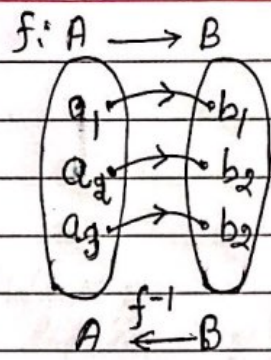 f: A → B
a₁ b₁
a₂ b₂
a₃ b₂
f⁻¹
A ← B